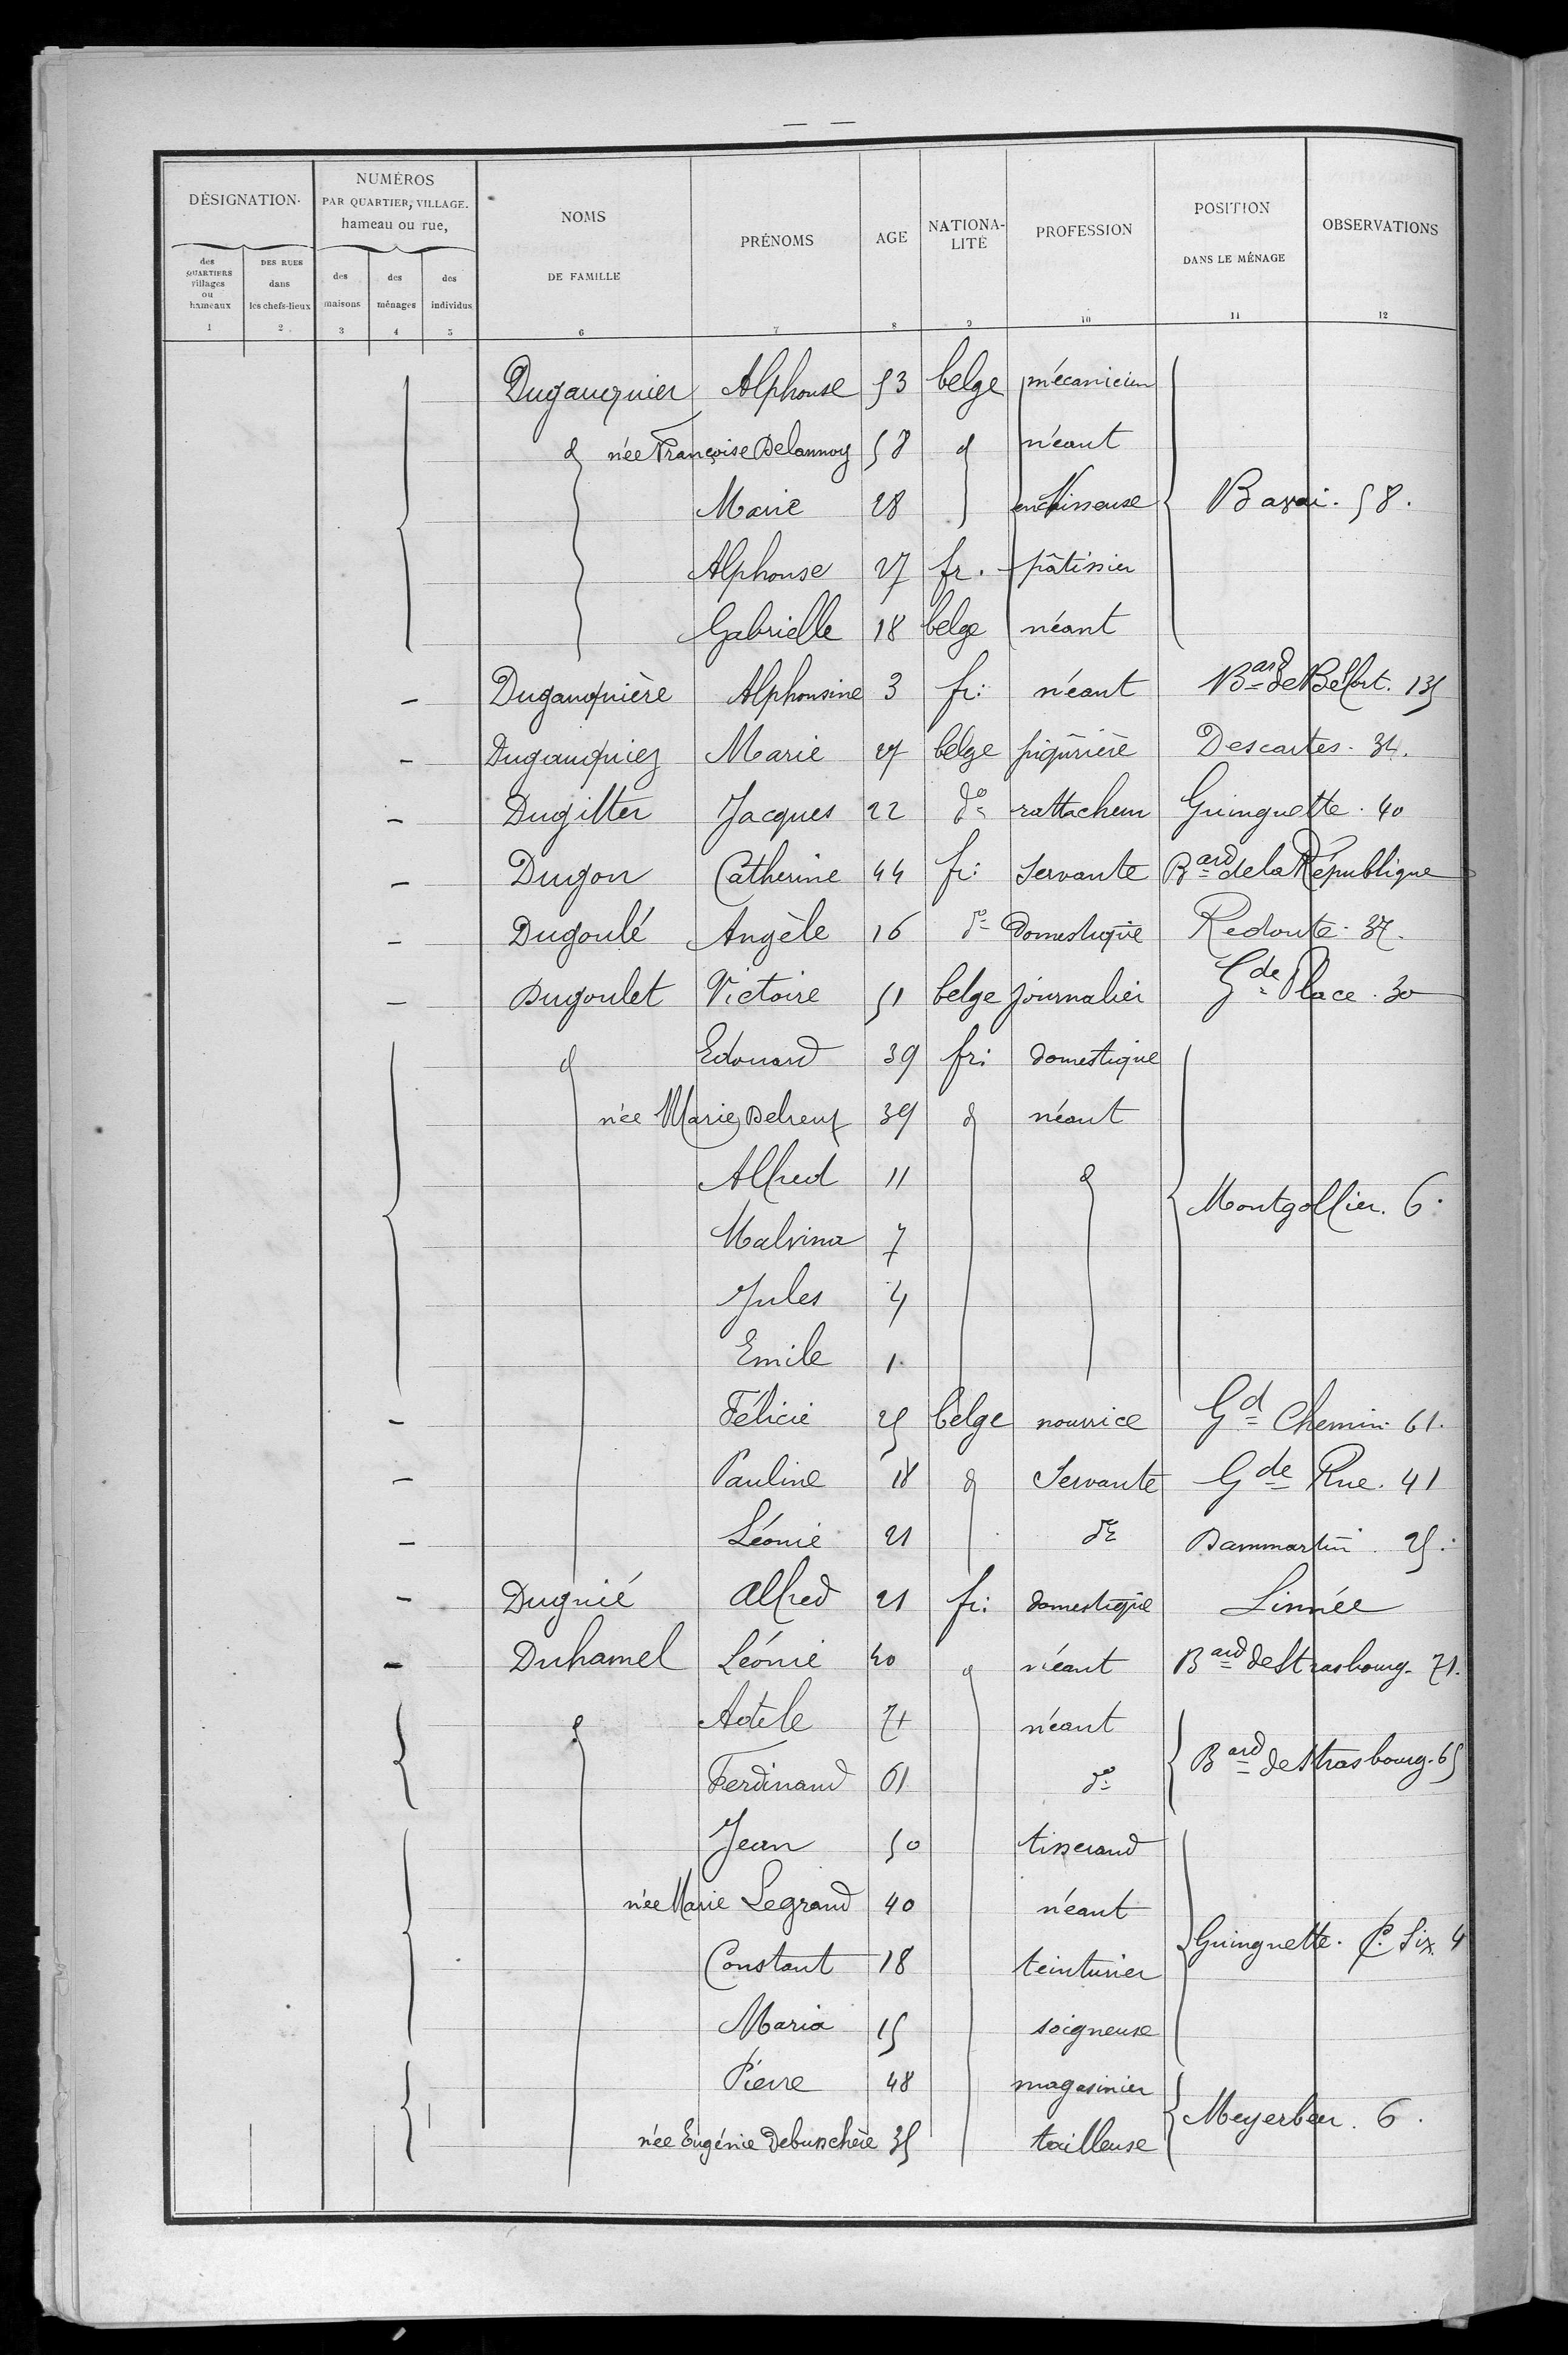 DÉSIGNATION
NUMÉROS
PAR QUARTIER, VILLAGE.
hameau ou rue,
NOMS
DE FAMILLE
PRÉNOMS
AGE
NATIONA-
LITÉ
PROFESSION
POSITION
DANS LE MÉNAGE
OBSERVATIONS
des
QUARTIERS
villages
ou
hameaux
DES RUES
dans
les chefs-lieux
des
maisons
des
ménages
des
individus
1 2 3 4 5 6 7 8 9 10 11 12
Dugauquier Alphonse 53 belge mécanicien
d née Françoise Delannoy 58 d néant
Marie 28 Bavai. 58.
Alphonse 27 fr. pâtissier
Gabrielle 18 belge néant
– Dugauquière Alphonsine 3 fr: néant Bard de Belfort. 135
– Dugauquiez Marie 27 belge piqûrière Descartes. 34.
– Dugitter Jacques 22 do rattacheur Guinguette. 40
– Dugon Catherine 44 fr: servante Bard de la République
– Dugoulé Angèle 16 do domestique Redoute. 37.
– Dugoulet Victoire 51 belge journalier Gde Place. 30
d Edouard 39 fr: domestique
née Marie 39 d néant
Alfred 11 d
Montgolfier. 6.
Malvina 7
Jules 4
Emile 1.
– Félicie 25 belge nourrice Gd Chemin 61.
– Pauline 18 d Servante Gde Rue. 41
– Léonie 21 do Dammartin. 25.
– Dugnié Alfred 21 fr: domestique Linnée
– Duhamel Léonie 40 d néant Bard de Strasbourg. 71.
d Adèle 71 néant
Bard de Strasbourg. 65
Ferdinand 61 do
Jean 50 tisserand
née Marie Legrand 40 néant
Guinguette. C. Six. 4
Constant 18 teinturier
Maria 15 soigneuse
Pierre 48 magasinier
Meyerbeer. 6.
née Eugénie Debusschère 35 tailleuse